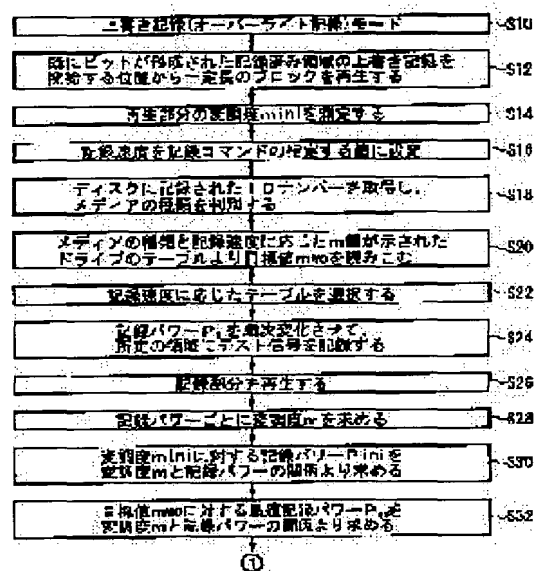 上書き記録(オーバーライト記録)モード
S10
既にピットが形成された記録済み領域の上書き記録を
開始する位置から一定長のブロックを再生する
S12
再生部分の変調度miniを測定する
S14
記録速度を記録コマンドの指定する値に設定
S16
ディスクに記録されたIDナンバーを取得し、
メディアの種類を判別する
S18
メディアの種類と記録速度に応じたm値が示された
ドライブのテーブルより目標値mwoを読みこむ
S20
記録速度に応じたテーブルを選択する
S22
記録パワーPiを順次変化させて、
所定の領域にテスト信号を記録する
S24
記録部分を再生する
S26
記録パワーごとに変調度mを求める
S28
変調度miniに対する記録パワーPiniを
変調度mと記録パワーの関係より求める
S30
目標値mwoに対する最適記録パワー
変調度mと記録パワーの関係より求める
S32
①